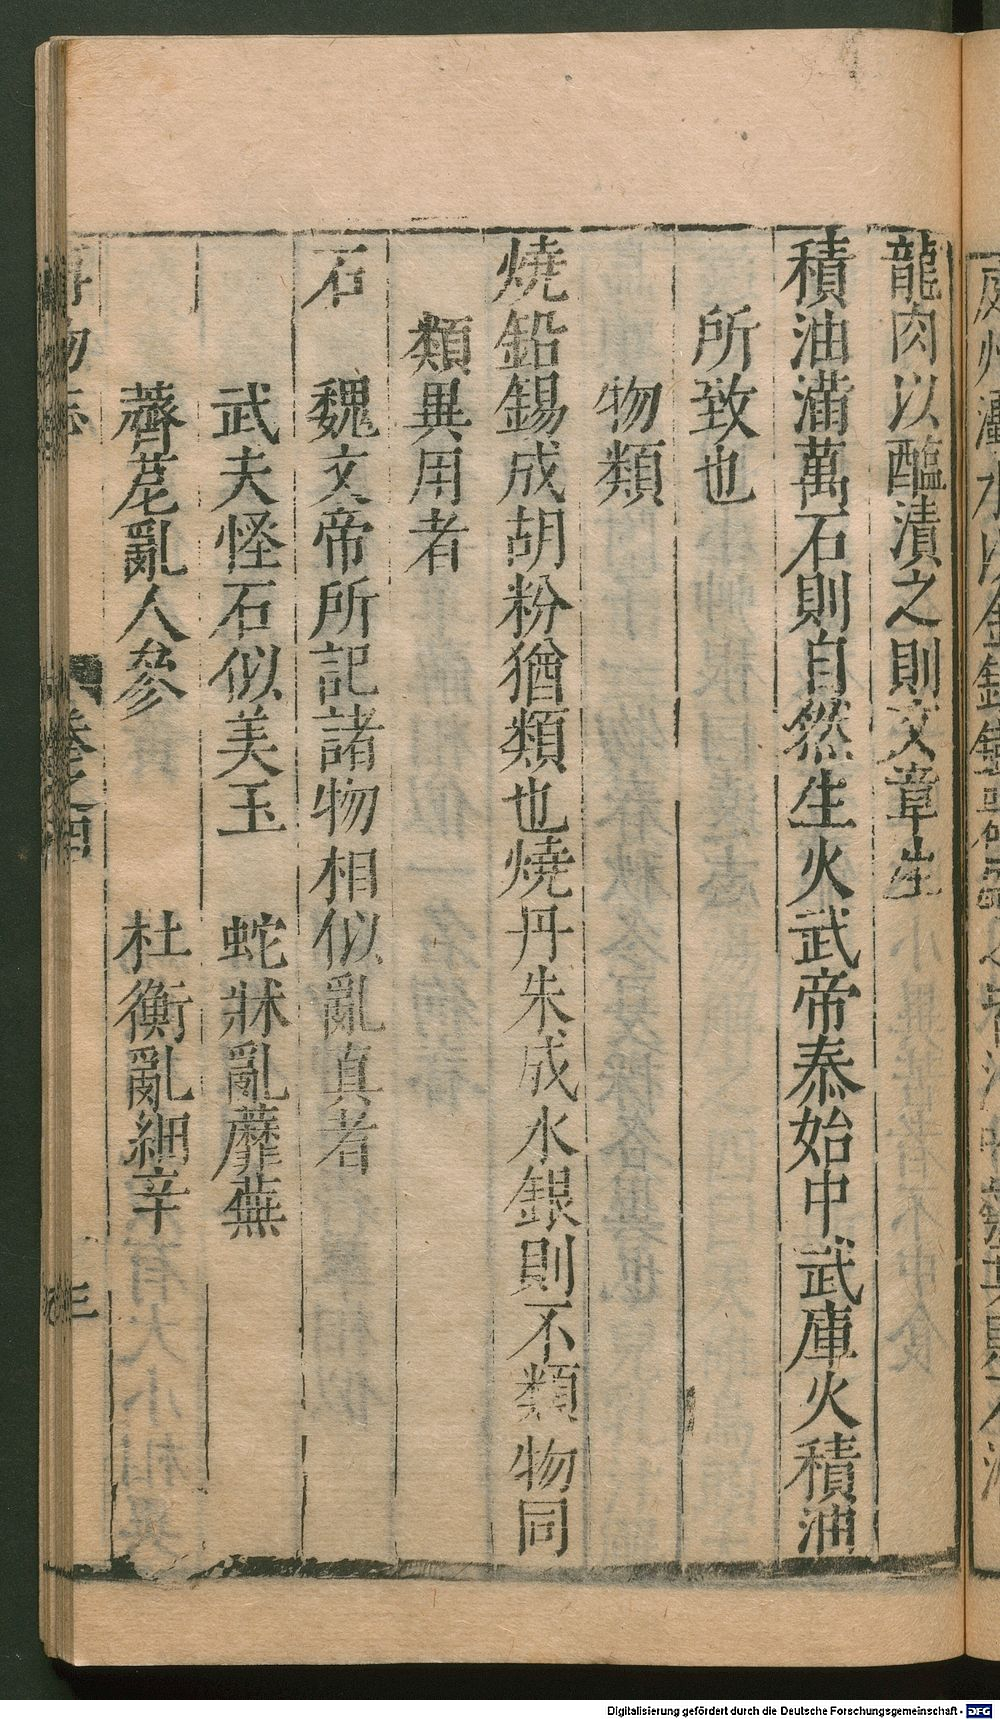 龍肉以醢漬之則文章生
積油滿萬石則自然生火武帝泰始中武庫火積油
所致也
物類
燒鉛錫成胡粉猶類也燒丹朱成水銀則不類物同
類異用者
石 魏文帝所記諸物相似亂真者
武夫怪石似美玉 蛇牀亂蘼蕪
薺苨亂人參 杜衡亂細辛
博物志 卷之四 三
Digitalisierung gefördert durch die Deutsche Forschungsgemeinschaft - DFG